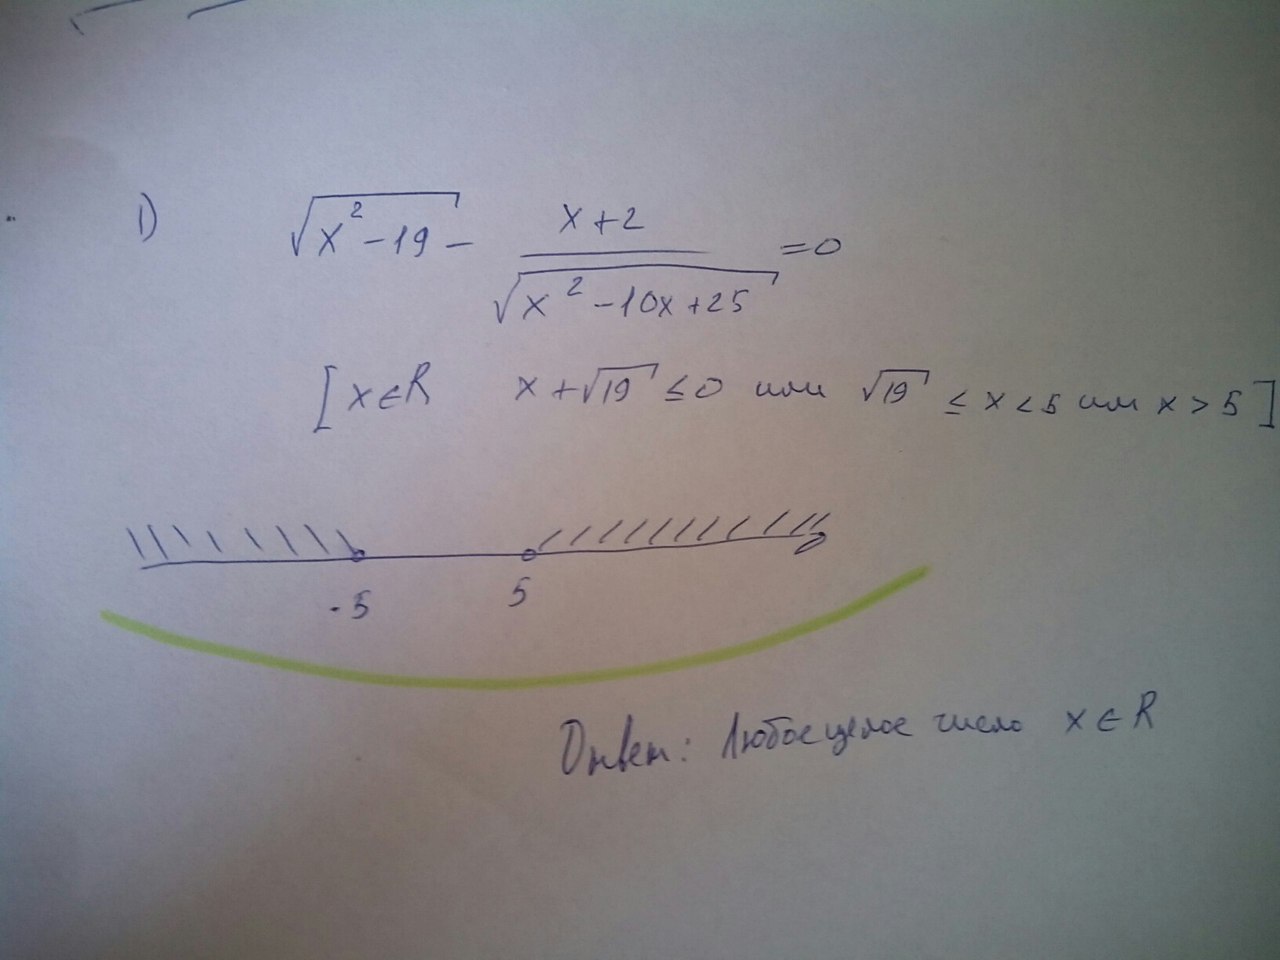 1) √(x² - 19) - (x + 2)/√(x² - 10x + 25) = 0
[x ∈ R x + √19 ≤ 0 или √19 ≤ x < 5 или x > 5]
-5 5
Ответ: Любое целое число x ∈ R